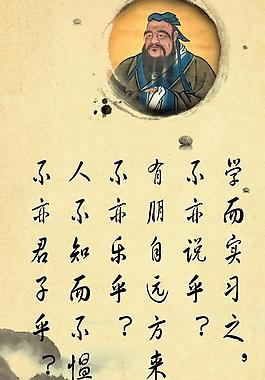 学而实习之，
不亦说乎？
有朋自远方来
不亦乐乎？
人不知而不愠
不亦君子乎？